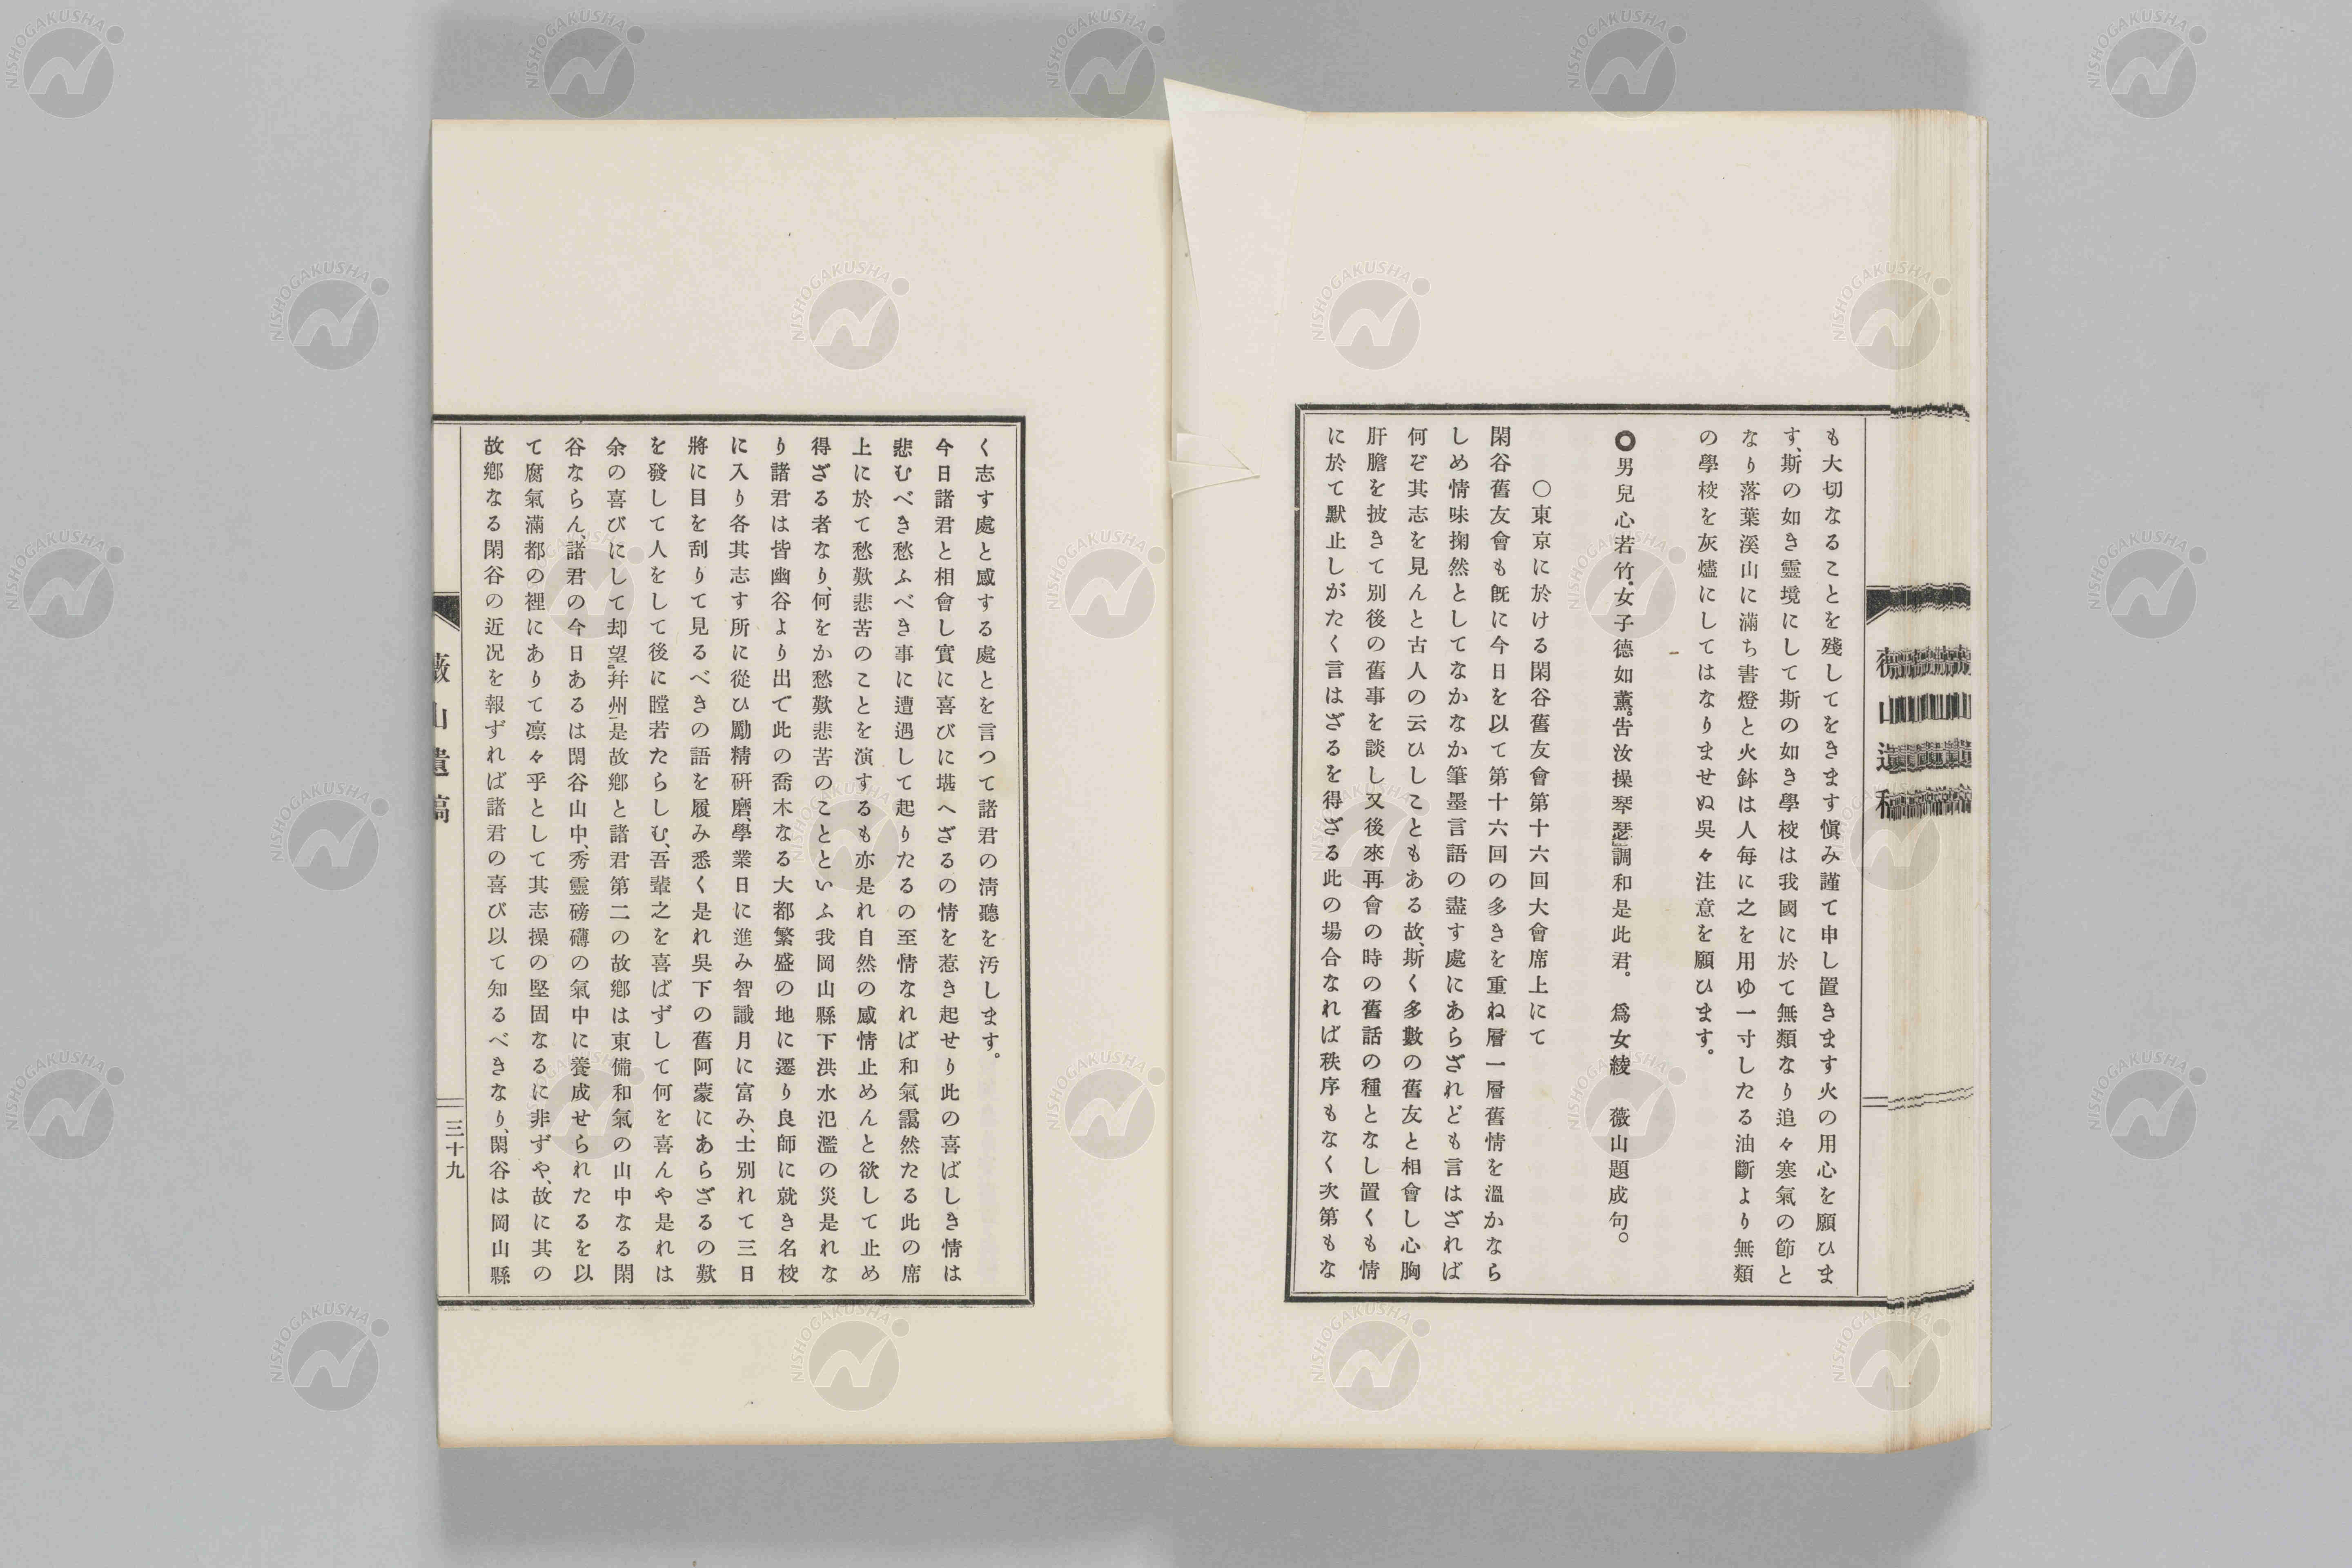 も大切なることを殘してをきます愼み謹て申し置きます火の用心を願ひま
す、斯の如き靈境にして斯の如き學校は我國に於て無類なり追々寒氣の節と
なり落葉溪山に滿ち書燈と火鉢は人每に之を用ゆ一寸したる油斷より無類
の學校を灰燼にしてはなりませぬ吳々注意を願ひます。
○男兒心若竹。女子德如薰。吿汝操琴瑟。調和是此君。 爲女綾 薇山題成句。
○東京に於ける閑谷舊友會第十六回大會席上にて
閑谷舊友會も既に今日を以て第十六回の多きを重ね層一層舊情を溫かなら
しめ情味掬然としてなかなか筆墨言語の盡す處にあらざれども言はざれば
何ぞ其志を見んと古人の云ひしこともある故、斯く多數の舊友と相會し心胸
肝膽を披きて別後の舊事を談し又後來再會の時の舊話の種となし置くも情
に於て默止しがたく言はざるを得ざる此の場合なれば秩序もなく次第もな
く志す處と感する處とを言つて諸君の淸聽を汚します。
今日諸君と相會し實に喜びに堪へざるの情を惹き起せり此の喜ばしき情は
悲むべき愁ふべき事に遭遇して起りたるの至情なれば和氣靄然たる此の席
上に於て愁歎悲苦のことを演するも亦是れ自然の感情止めんと欲して止め
得ざる者なり、何をか愁歎悲苦のことといふ我岡山縣下洪水氾濫の災是れな
り諸君は皆幽谷より出で此の喬木なる大都繁盛の地に遷り良師に就き名校
に入り各其志す所に從ひ勵精硏磨、學業日に進み智識月に富み、士別れて三日
將に目を刮りて見るべきの語を履み悉く是れ吳下の舊阿蒙にあらざるの歎
を發して人をして後に瞠若たらしむ、吾輩之を喜ばずして何を喜んや是れは
余の喜びにして却望幷州是故鄕と諸君第二の故鄕は東備和氣の山中なる閑
谷ならん、諸君の今日あるは閑谷山中、秀靈磅礴の氣中に養成せられたるを以
て腐氣滿都の裡にありて凛々乎として其志操の堅固なるに非ずや、故に其の
故鄕なる閑谷の近況を報ずれば諸君の喜び以て知るべきなり、閑谷は岡山縣
薇山遺稿
三十九